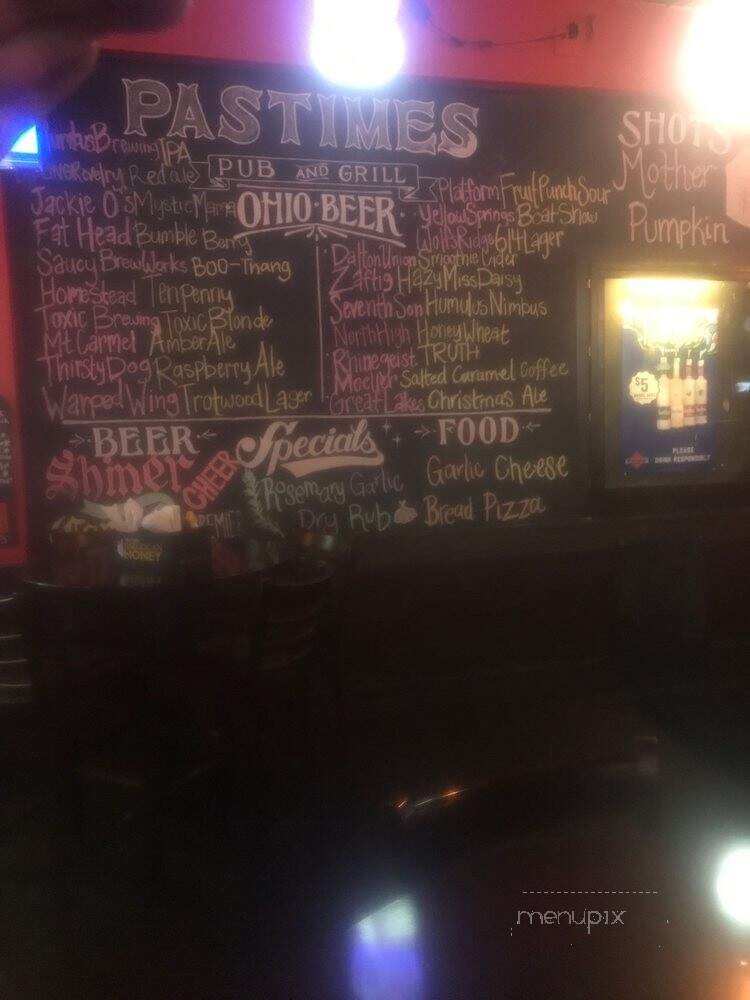 PASTIMES
PUB AND GRILL
OHIO · BEER
Brewing IPA
Revelry Redale
Jackie O's Mystic Mama
Fat Head Bumble Berry
Saucy BrewWorks Boo-Thang
HomeStead Tenpenny
Toxic Brewing Toxic Blonde
Mt Carmel Amber Ale
Thirsty Dog Raspberry Ale
Warped Wing Trotwood Lager
Platform Fruit Punch Sour
Yellow Springs Boat Show
Wolfs Ridge 614 Lager
Dalton Union Smoothie Cider
Zaftig Hazy Miss Daisy
Seventh Son Humulus Nimbus
North High Honey Wheat
Rhinegeist TRUTH
Moeller Salted Caramel Coffee
Great Lakes Christmas Ale
SHOTS
Mother
Pumpkin
$5
PLEASE
DRINK RESPONSIBLY
BEER
Shiner
CHEER
Specials
Rosemary Garlic
Dry Rub
FOOD
Garlic Cheese
Bread Pizza
MONEY
menupix